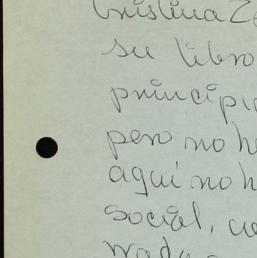 Cristina Ze
su libro
principi
pero no h
aquí no h
social, u